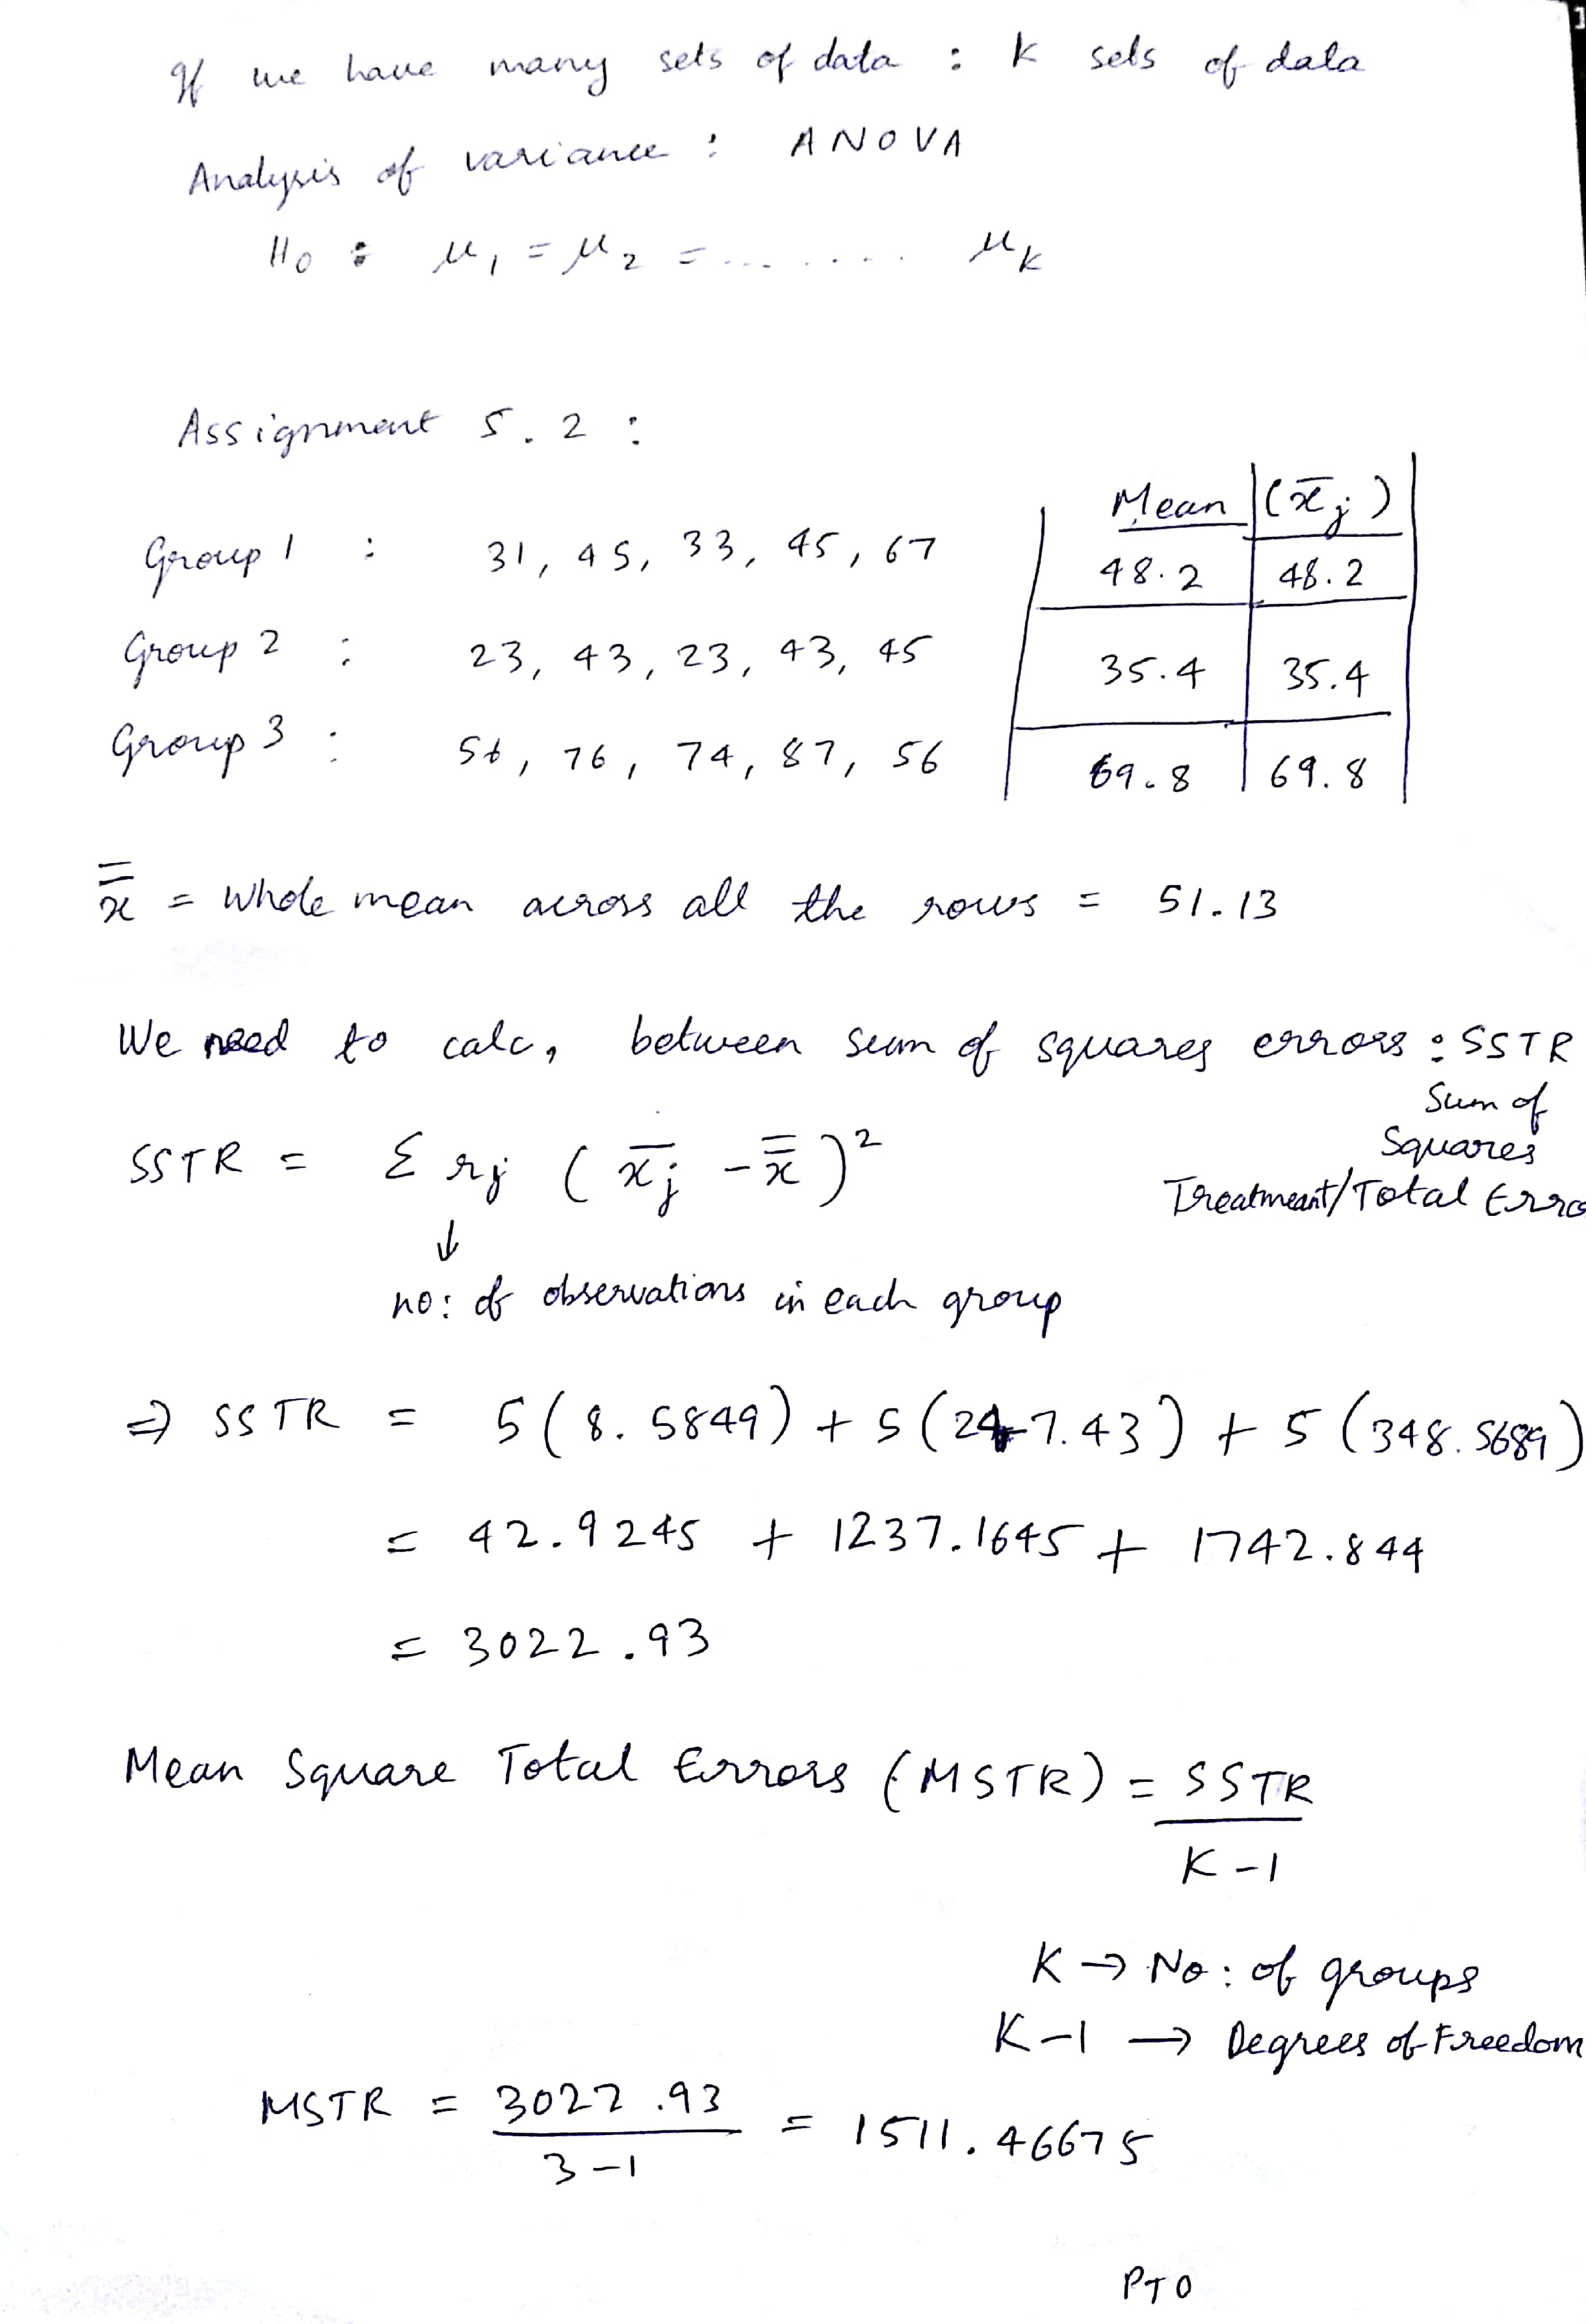 If we have many sets of data : K sets of data
Analysis of variance : ANOVA
H₀ : μ₁ = μ₂ = ....... μₖ
Assignment 5.2 :
Mean (x̄ⱼ)
Group 1 : 31, 45, 33, 45, 67 48.2 48.2
Group 2 : 23, 43, 23, 43, 45 35.4 35.4
Group 3 : 56, 76, 74, 87, 56 69.8 69.8
x̿ = Whole mean across all the rows = 51.13
We need to calc, between sum of squares errors : SSTR
Sum of
Squares
Treatmeant/Total Erro
SSTR = Σ rⱼ (x̄ⱼ - x̿)²
↓
no: of observations in each group
⇒ SSTR = 5(8.5849) + 5(247.43) + 5(348.5689)
= 42.9245 + 1237.1645 + 1742.844
= 3022.93
Mean Square Total Errors (MSTR) = SSTR
K-1
K → No: of groups
K-1 → Degrees of Freedom
MSTR = 3022.93 = 1511.46675
3-1
PTO